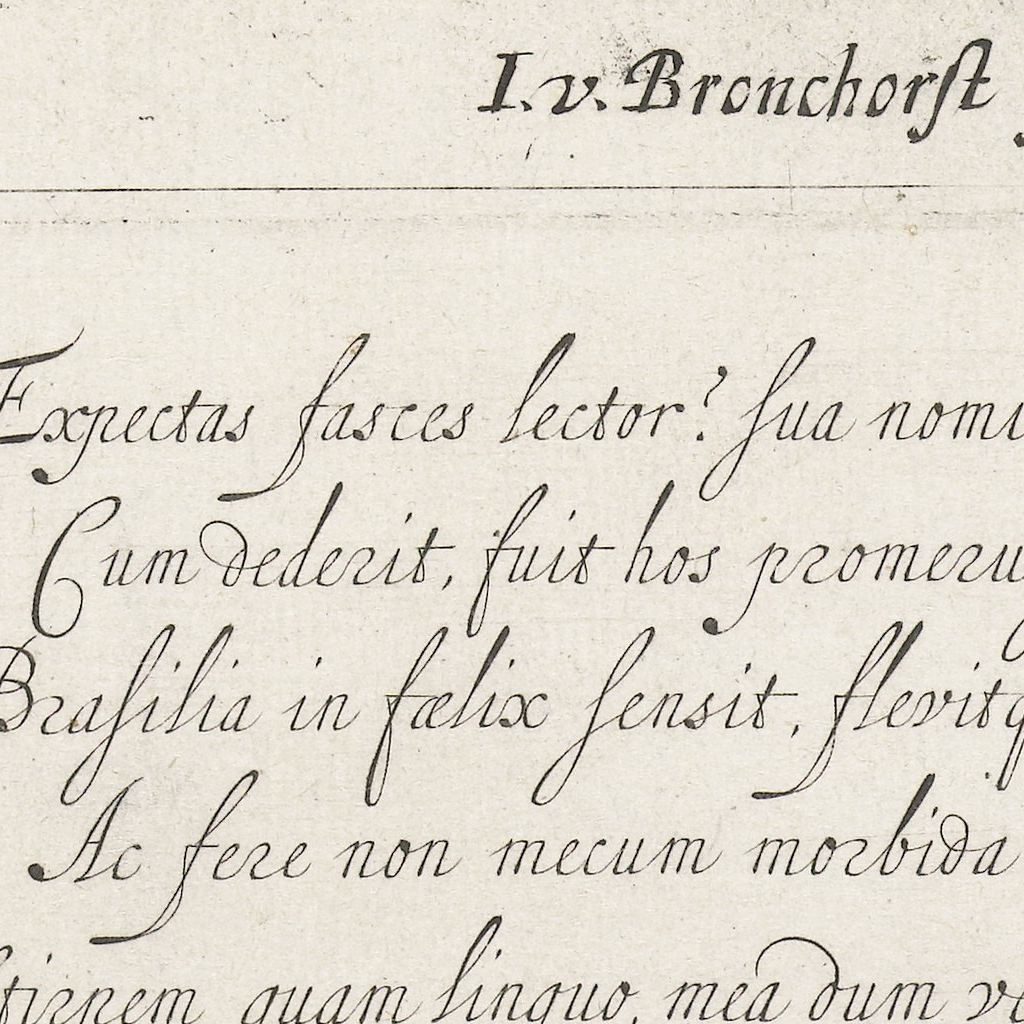 I. v. Bronchorſt
Expectas fasces lector? ſua nomi
Cum dederit, fuit hos promeru
Braſilia in fælix ſensit, flevitq
Ac fere non mecum morbida
ſtirpem quam linquo, mea dum ve